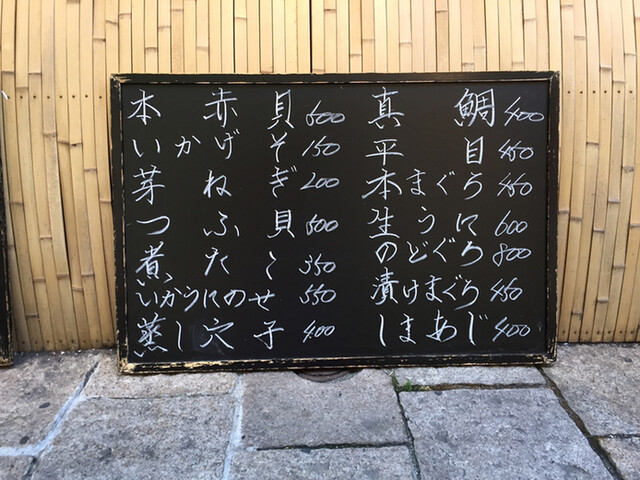 本赤貝 600
いかげそ 150
芽ねぎ 200
つぶ貝 500
煮だこ 350
いかうにのせ 550
蒸し穴子 400
真鯛 400
平目 450
本まぐろ 450
生うに 600
のどぐろ 800
漬けまぐろ 450
しまあじ 400